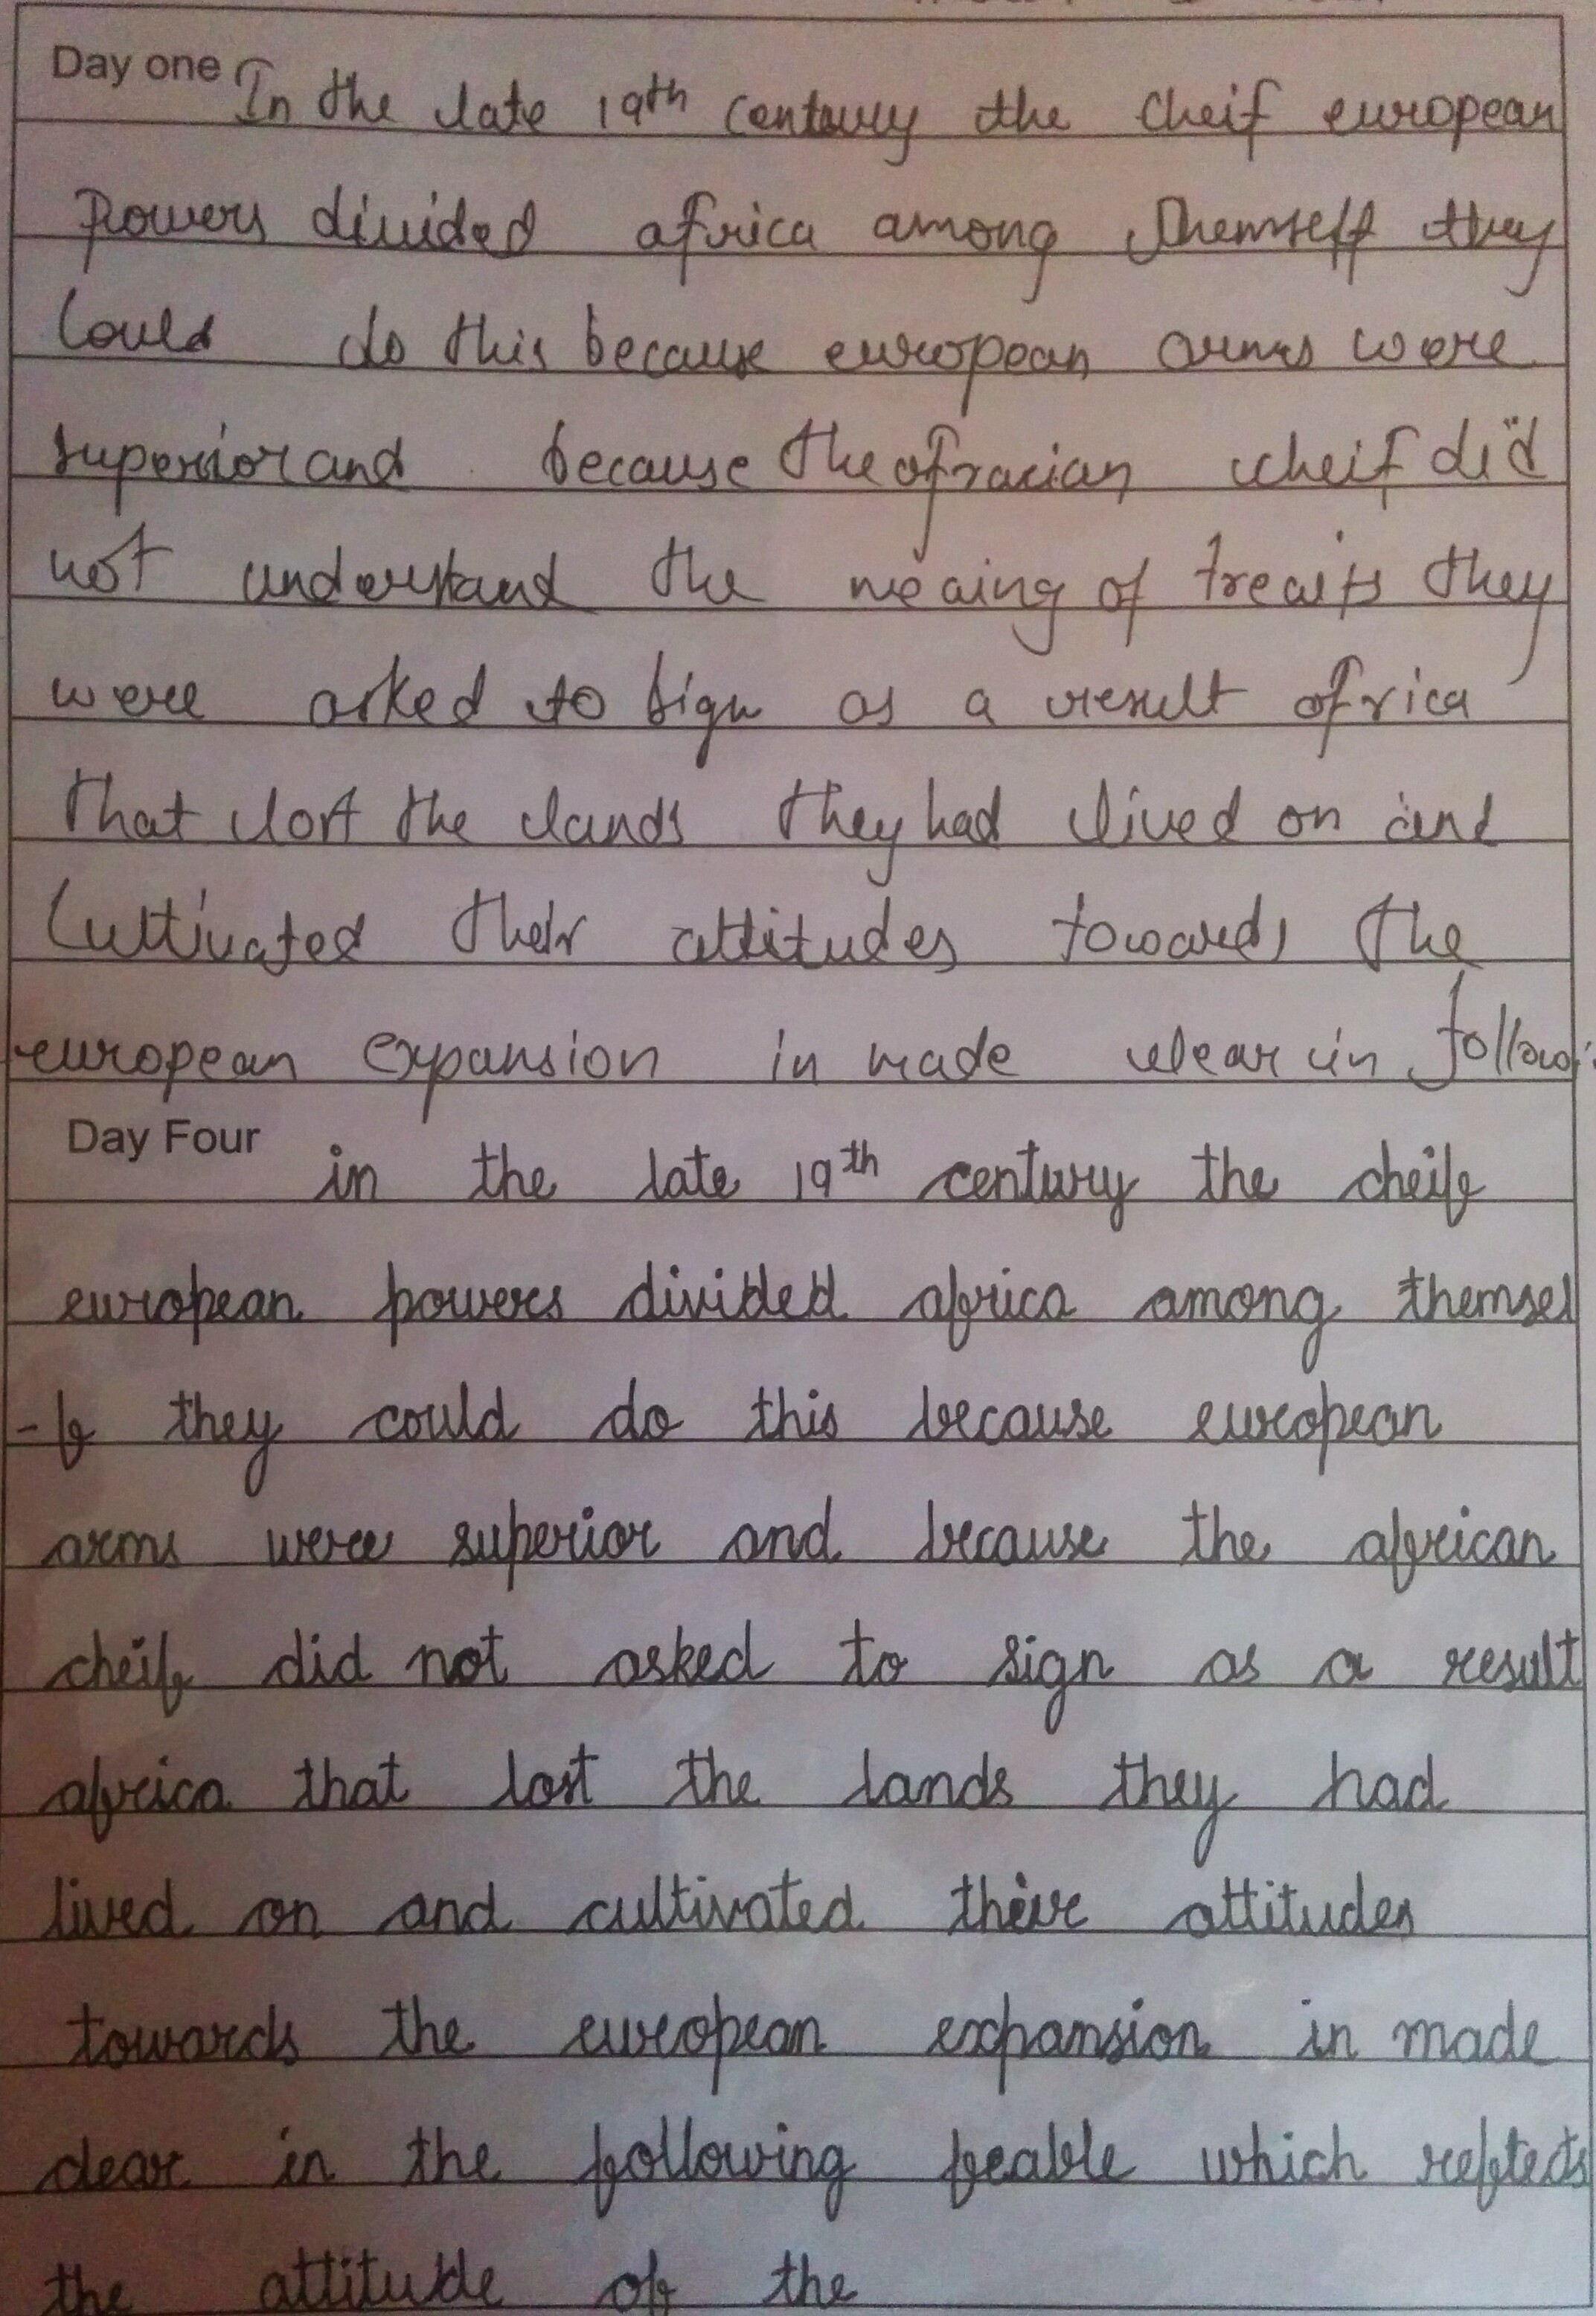 Day one In the late 19th century the cheif european
powers divided africa among themself they
could do this because european arms were
superior and because the afracian cheif did
not understand the meaing of they
were asked to sign as a result africa
that lost the lands they had lived on and
cultivated their attitudes towards the
european expansion in made clear in follow
Day Four in the late 19th century the cheif
european powers divided africa among themsel
-f they could do this because european
arms were superior and because the african
cheif did not asked to sign as a result
africa that lost the lands they had
lived on and cultivated their attitudes
towards the european expansion in made
clear in the following feable which reflects
the attitude of the